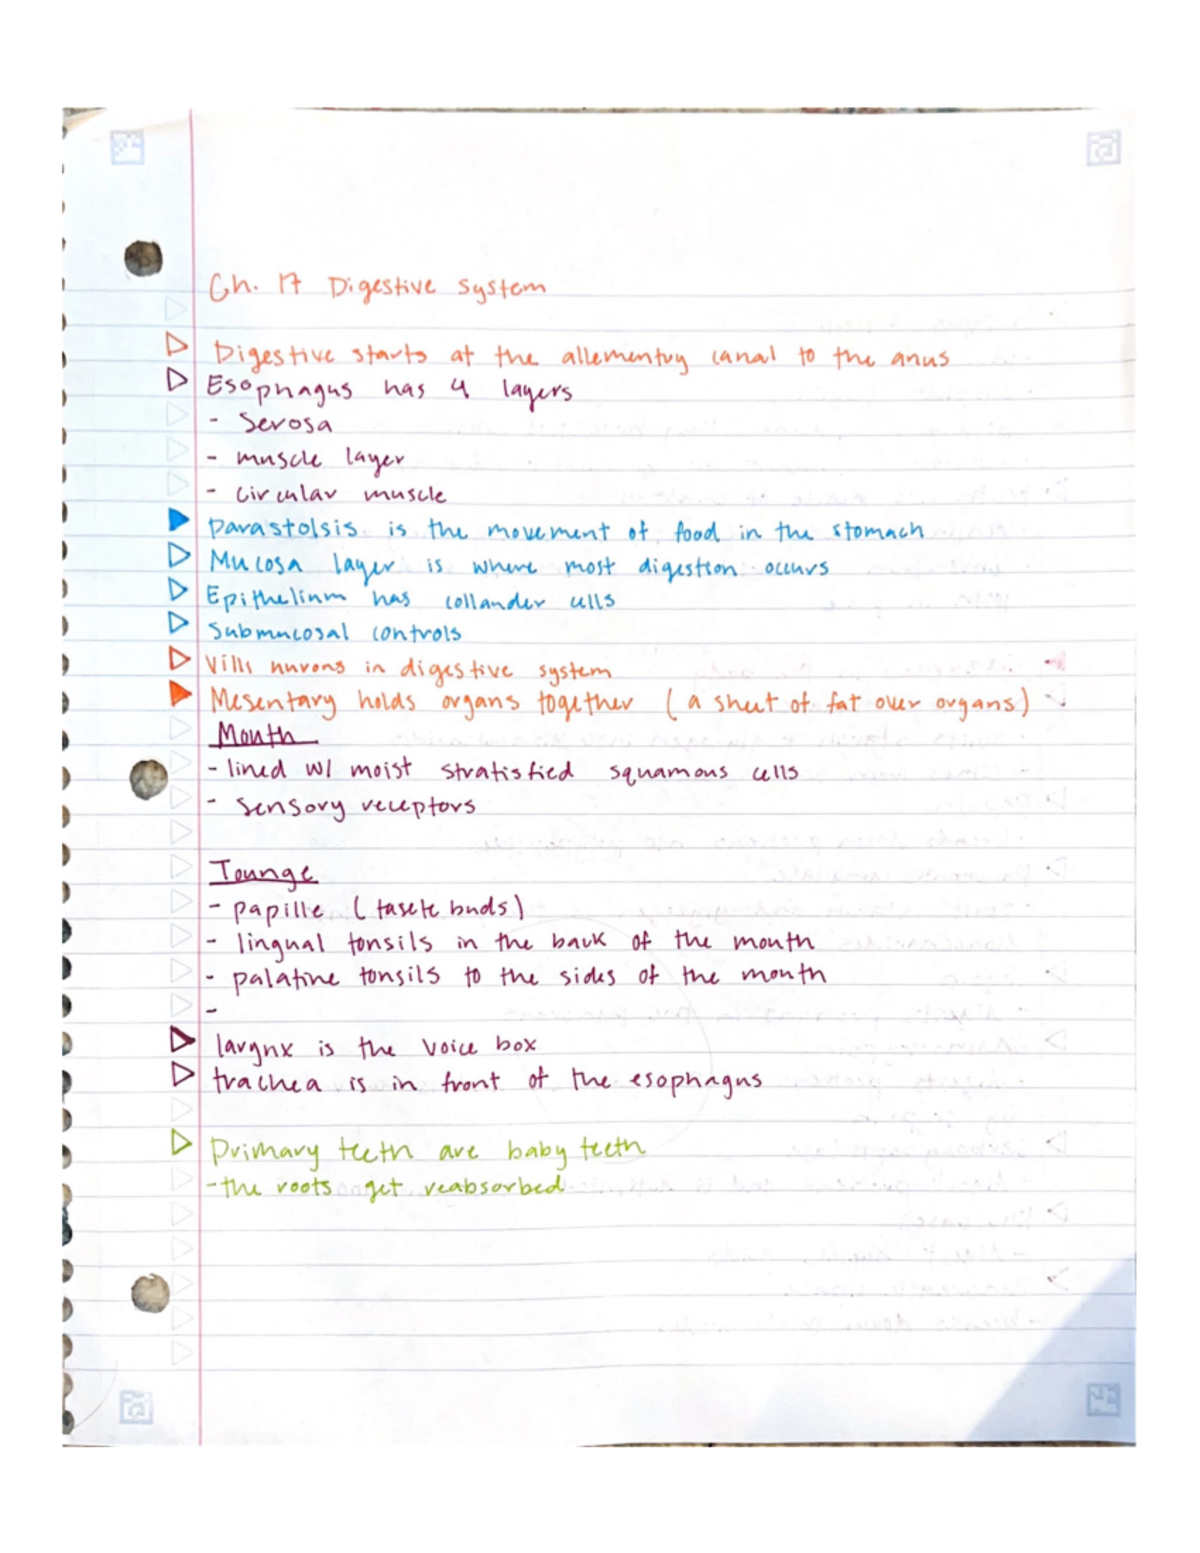 Ch. 17 Digestive system
Digestive starts at the allementvy canal to the anus
Esophagus has 4 layers
- Serosa
- muscle layer
- circular muscle
Parastolsis is the movement of food in the stomach
Mucosa layer is where most digestion occurs
Epithelium has collander cells
Submucosal controls
Villi nurons in digestive system
Mesentary holds organs together (a sheet of fat over organs)
Mouth
- lined w/ moist stratisfied squamous cells
- sensory receptors
Tounge
- papille (tasete buds)
- lingual tonsils in the back of the mouth
- palatine tonsils to the sides of the mouth
-
larynx is the voice box
trachea is in front of the esophagus
Primary teeth are baby teeth
- the roots get reabsorbed